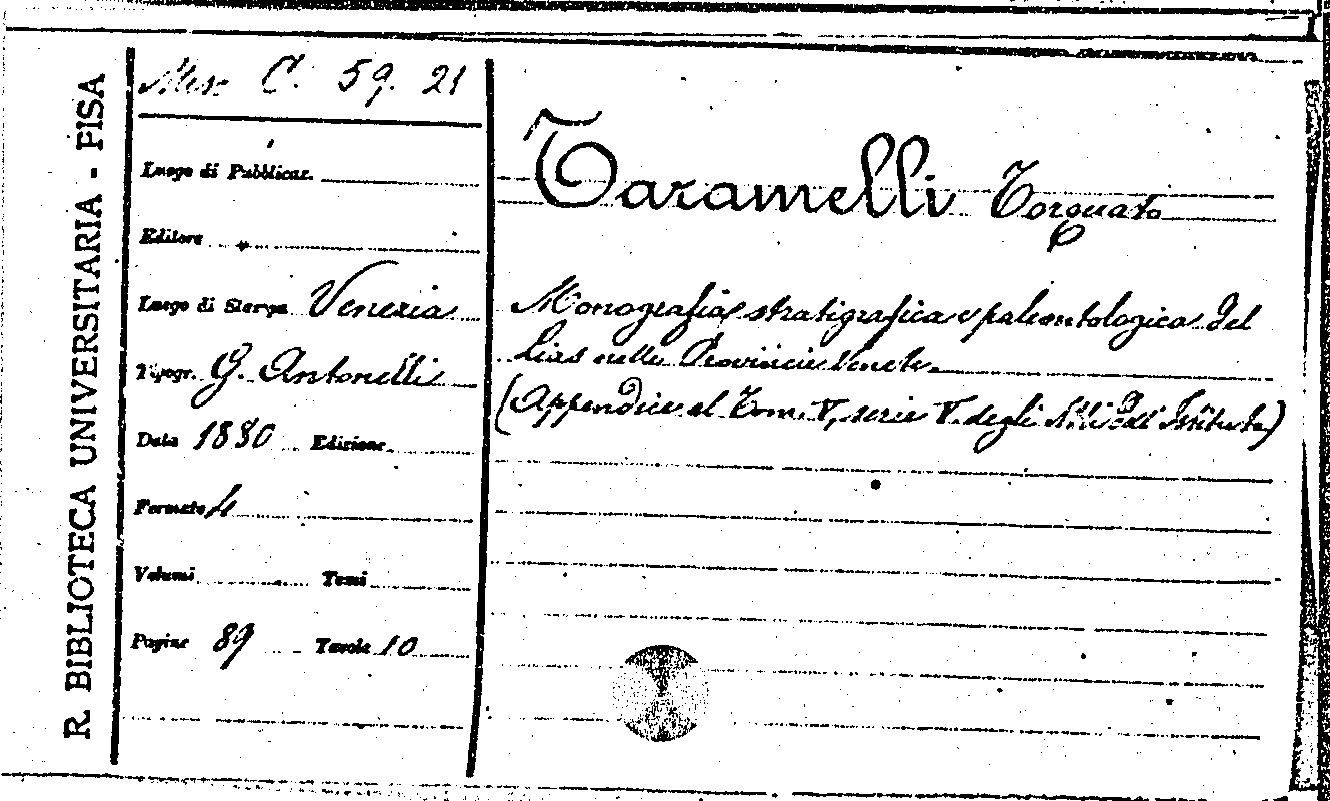 R. BIBLIOTECA UNIVERSITARIA - PISA
Misc C. 59. 21
Luogo di Pubblicaz.
Editore
Luogo di Stampa Venezia
Tipogr. G. Antonelli
Data 1880 Edizione
Formato 4
Volumi Tomi
Pagine 89 Tavole 10
Taramelli Torquato
Monografia stratigrafica e paleontologica del
Lias nelle Provincie Venete.
(Appendice al Tom. V, serie V. degli Atti dell'Istituto)